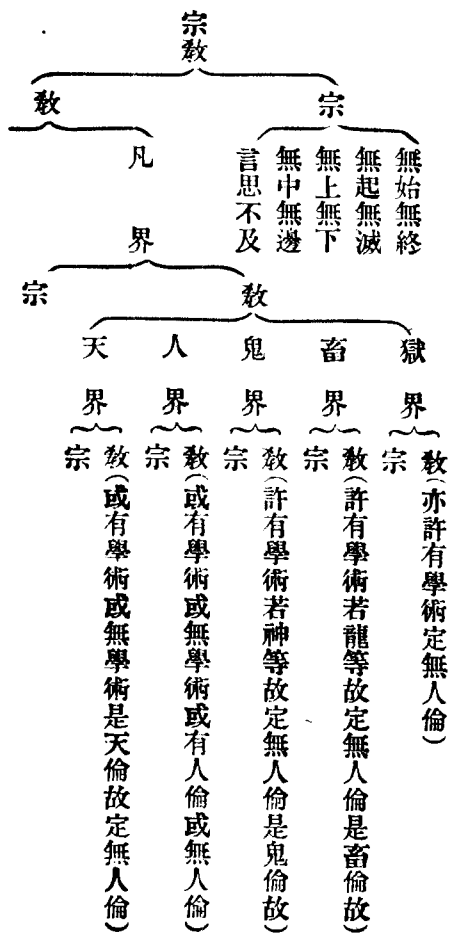 宗教
宗
無始無終
無起無滅
無上無下
無中無邊
言思不及
教
凡界
教
獄界
教(亦許有學術定無人倫)
宗
畜界
教(許有學術若龍等故定無人倫是畜倫故)
宗
鬼界
教(許有學術若神等故定無人倫是鬼倫故)
宗
人界
教(或有學術或無學術或有人倫或無人倫)
宗
天界
教(或有學術或無學術是天倫故定無人倫)
宗
宗